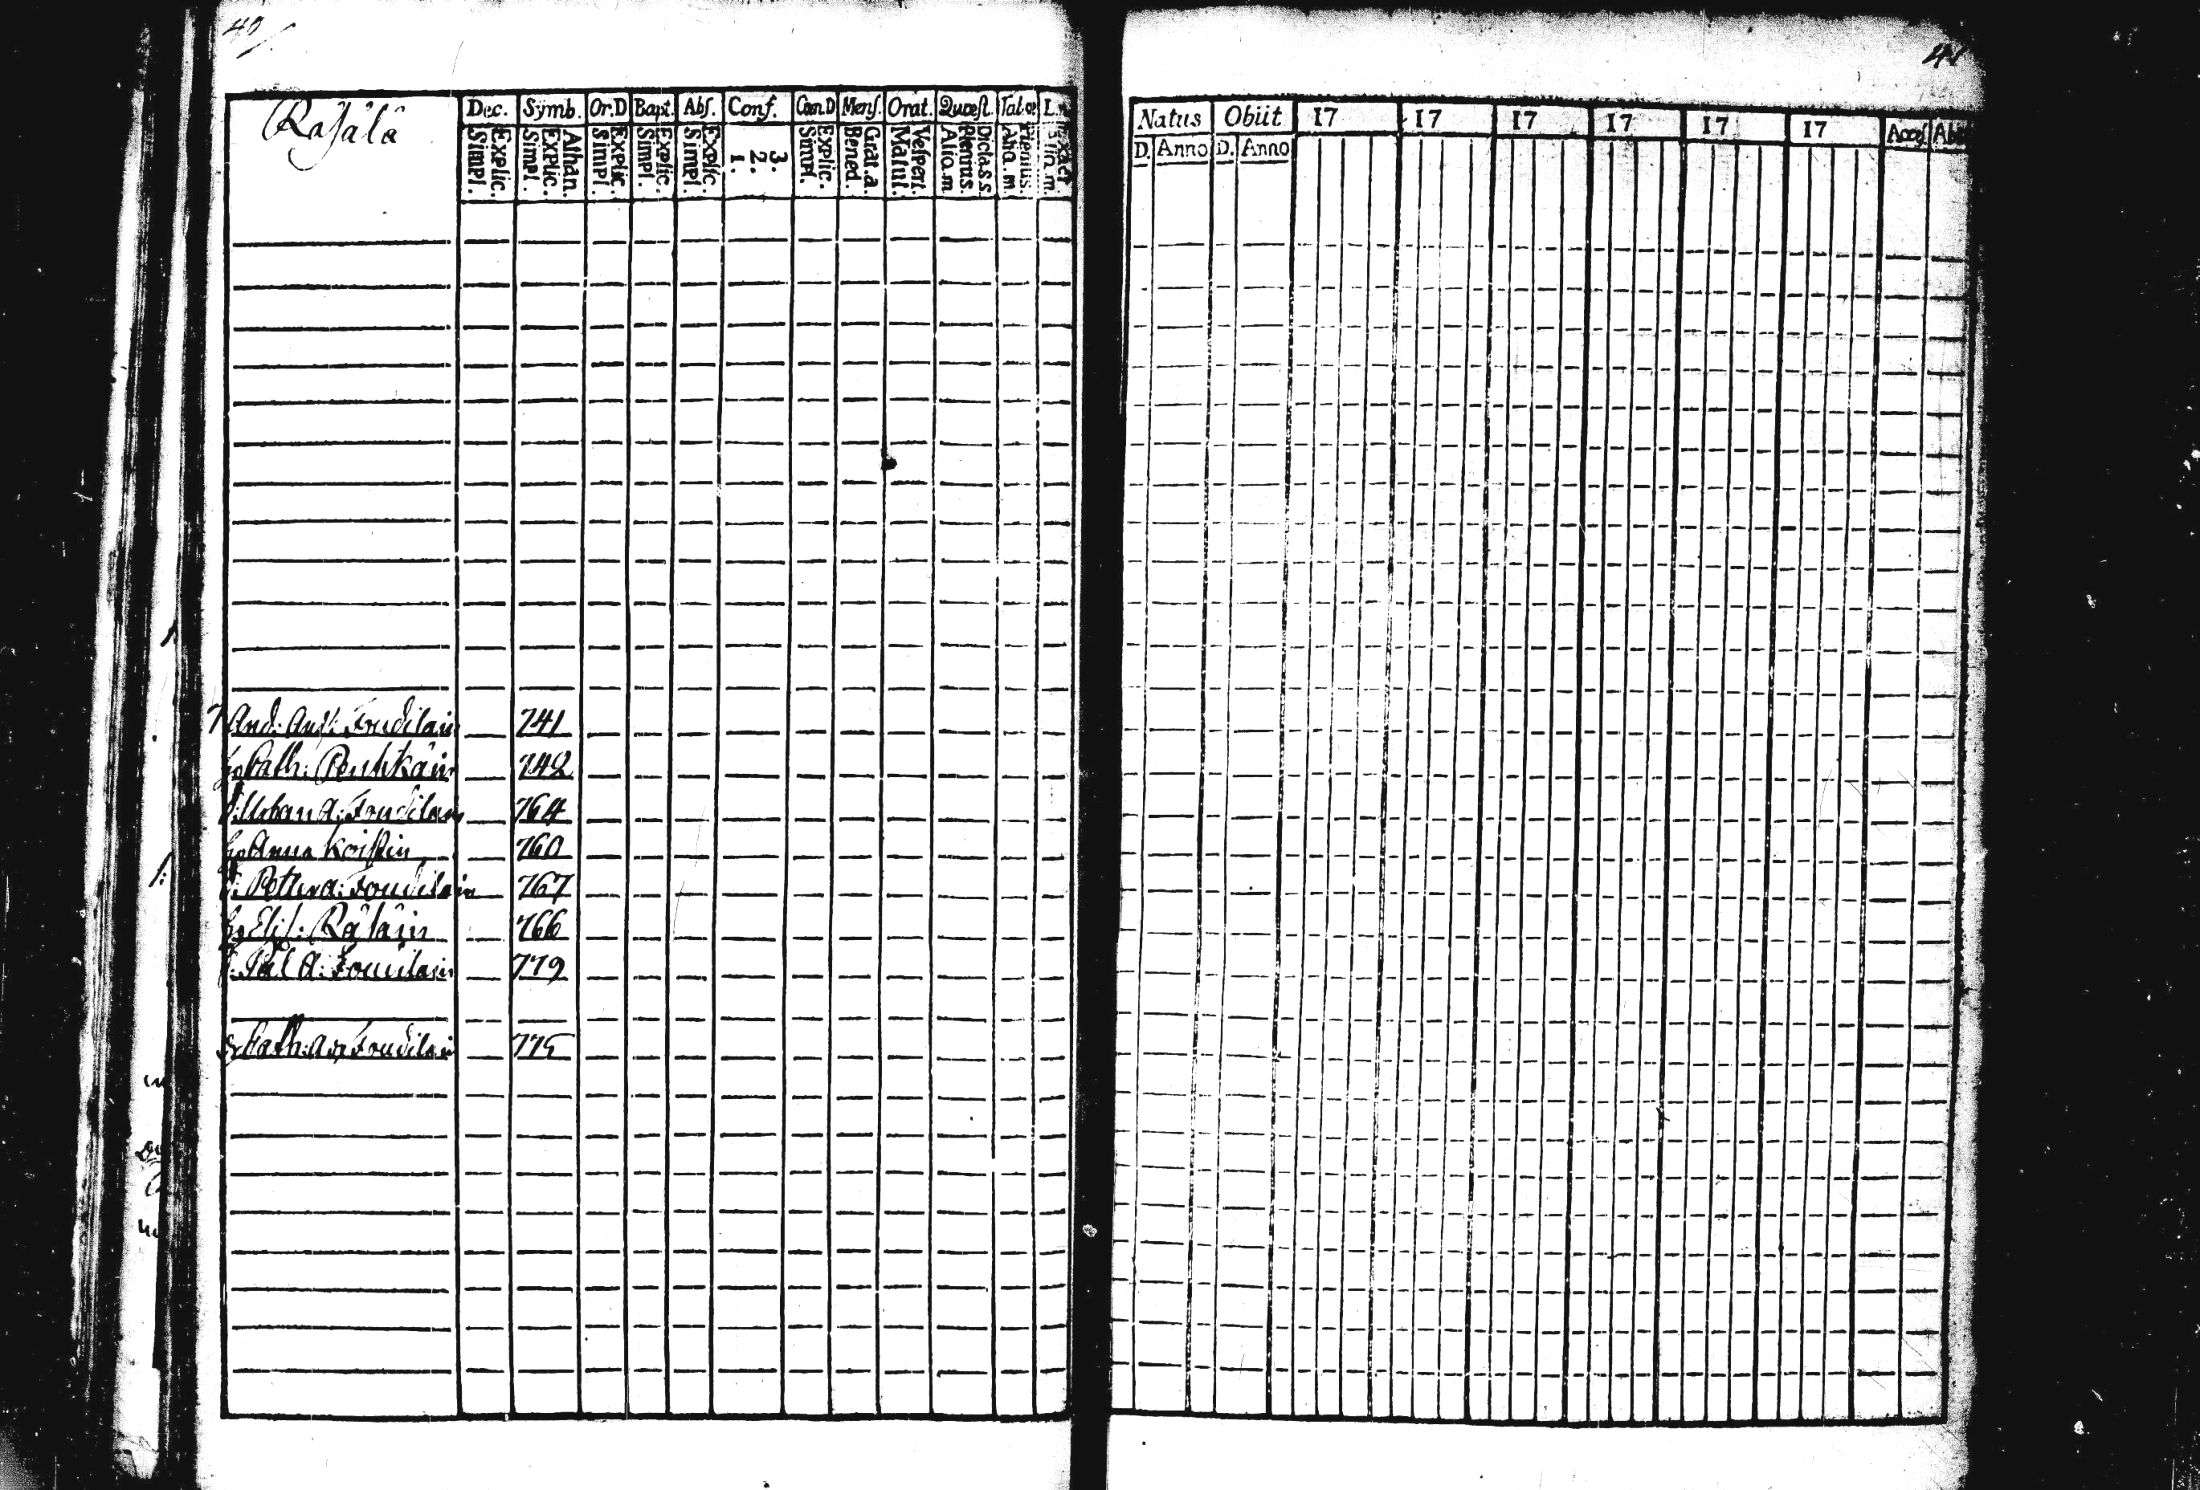 40
Räsälä
Dec. Symb. Or.D Bapt. Abs. Conf. Cœn.D Mens. Orat. Quæst. Tal.œc L.
Explic. Simpl. Athan. Explic. Simpl. Explic. Simpl. Explic. Simpl. Explic. Simpl. 3. 2. 1. Explic. Simpl. Grat.a. Bened. Vespert. Matut. Dicta s.s. Plenius. Alio.m Plenius. Alio.m. Exact
And: And: Foudilain 741
Cath: Pentikäin 742
Urban A: Foudilain 764
Anna Koistin 760
Petter A: Foudilain 767
Elis: Räsäin 766
Pål A: Foudilain 779
Cath: A: Foudilain 775
41
Natus Obiit 17 17 17 17 17 17 Acces Ab
D. Anno D. Anno